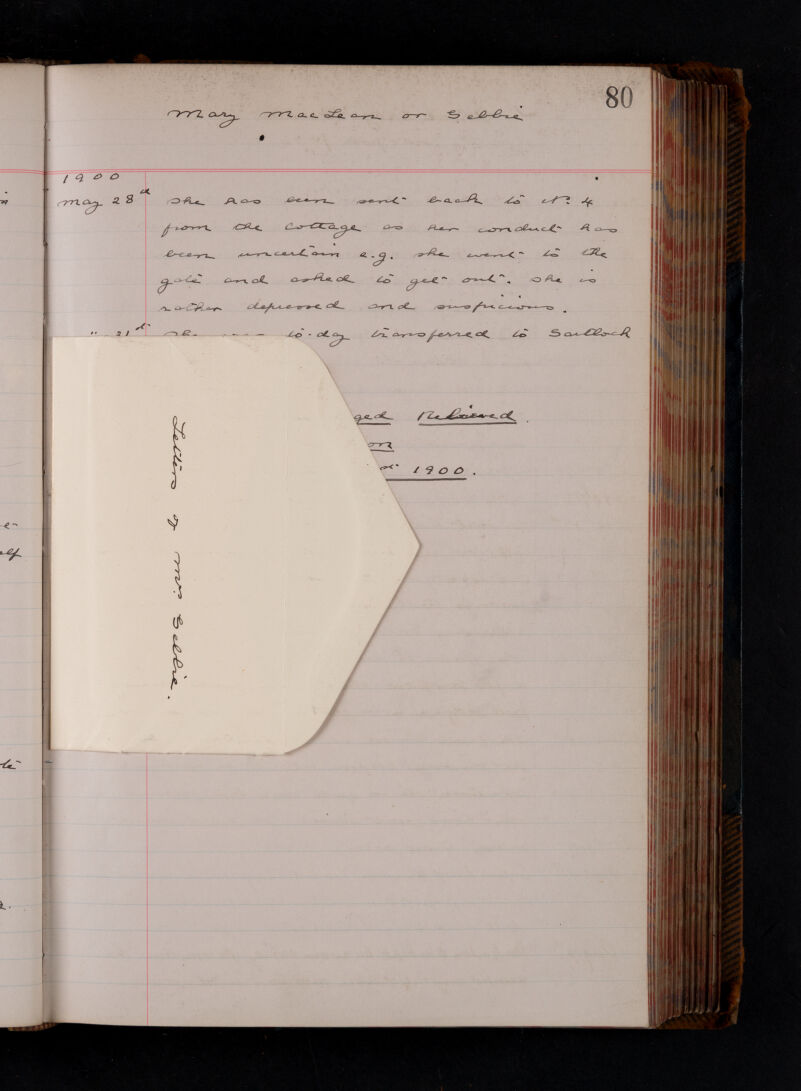 80
Mary MacLean or Gebbie
1900
May 28th She has been sent back to No. 4
from the Cottage as her conduct has
been uncertain e.g. she went to the
gate and asked to get out. She is
rather depressed and suspicious.
" 31st She to-day transferred to Gartloch
Relieved.
on
1900.
Letters of Mrs. Gebbie.